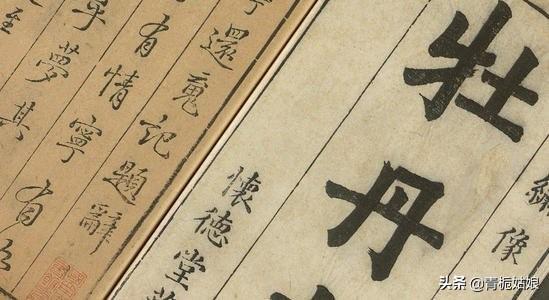 繡像
牡丹
懷德堂
還魂記題辭
有情寧有
乎夢其
至
头条 @青栀姑娘